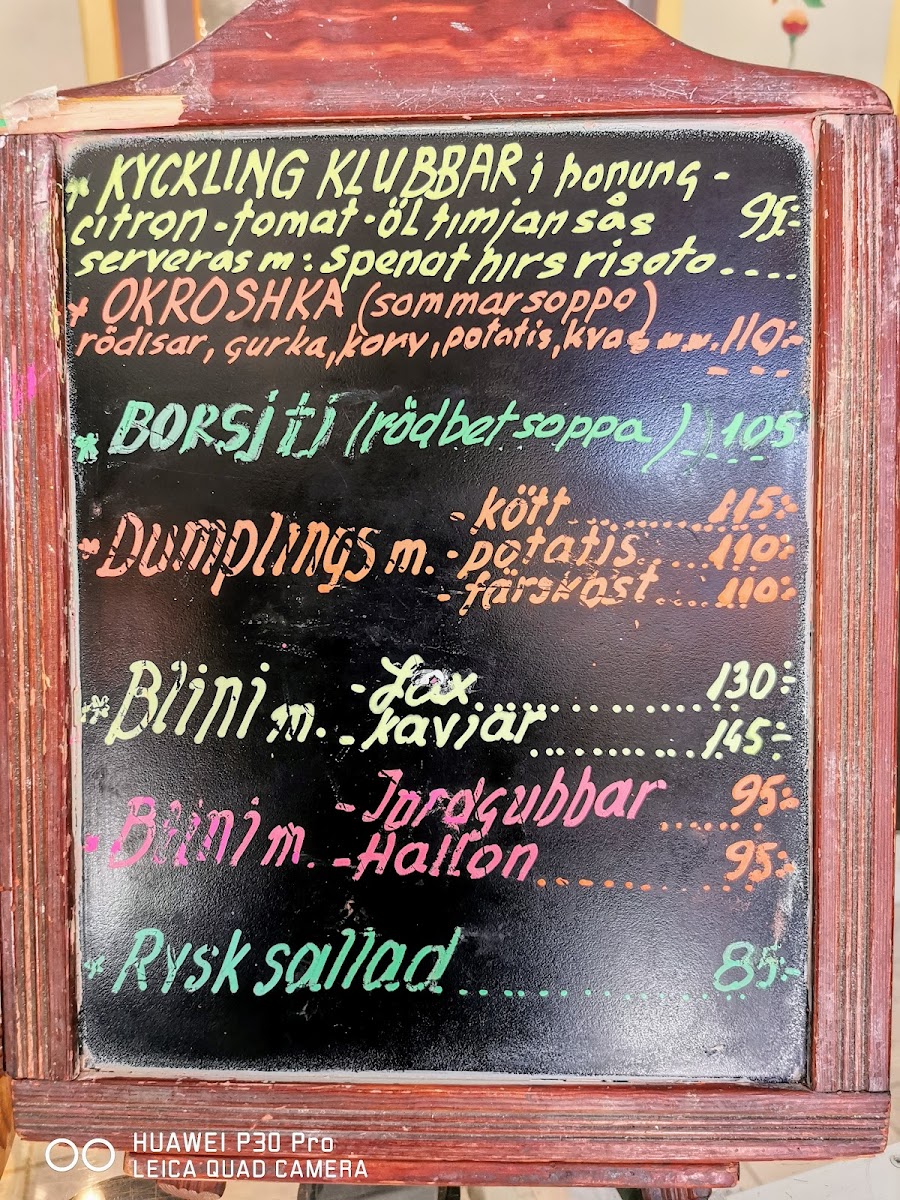 * KYCKLING KLUBBAR i honung-
citron-tomat-öl timjan sås 95:-
serveras m: spenat hirs risoto....
* OKROSHKA (sommarsoppa)
rödisar, gurka, korv, potatis, kvas ... 110:-
* BORSjtj (rödbetsoppa) 105
- kött ........ 115:-
* Dumplings m. - potatis.... 110:-
- färskost.... 110:-
* Blini m. - Lax ........ 130:-
- kavjär ........ 145:-
* Blini m. - Jordgubbar ...... 95:-
- Hallon ........ 95:-
* Rysk sallad ........ 85:-
HUAWEI P30 Pro
LEICA QUAD CAMERA